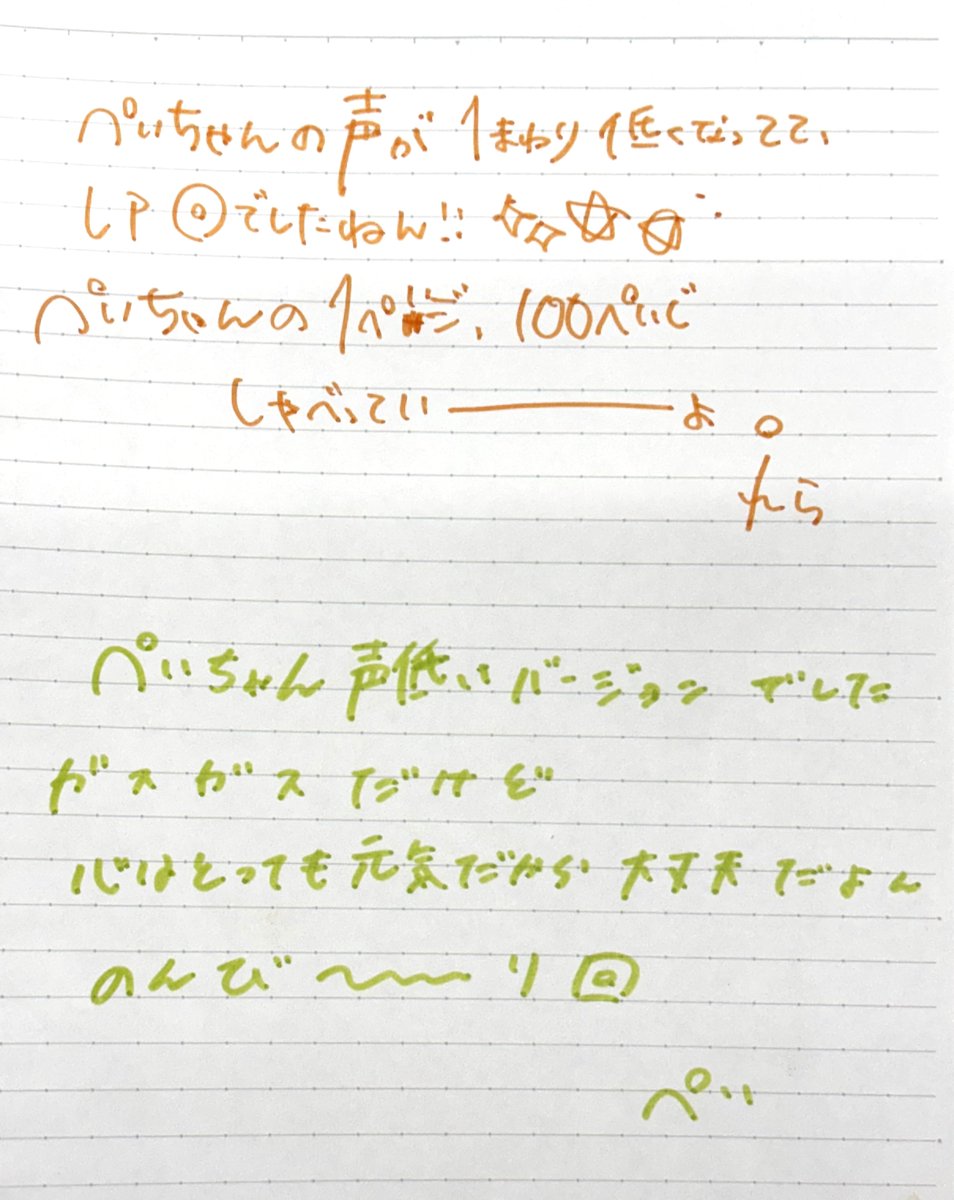 ぺいちゃんの声が1まわり低くなってて、
レア回でしたねん!!
ぺいちゃんの1ぺいじ、100ぺいじ
しゃべってい――――よ。
れら
ぺいちゃん声低いバージョンでした
ガスガスだけど
心はとっても元気だから大丈夫だよん
のんび〜〜り回
ぺい